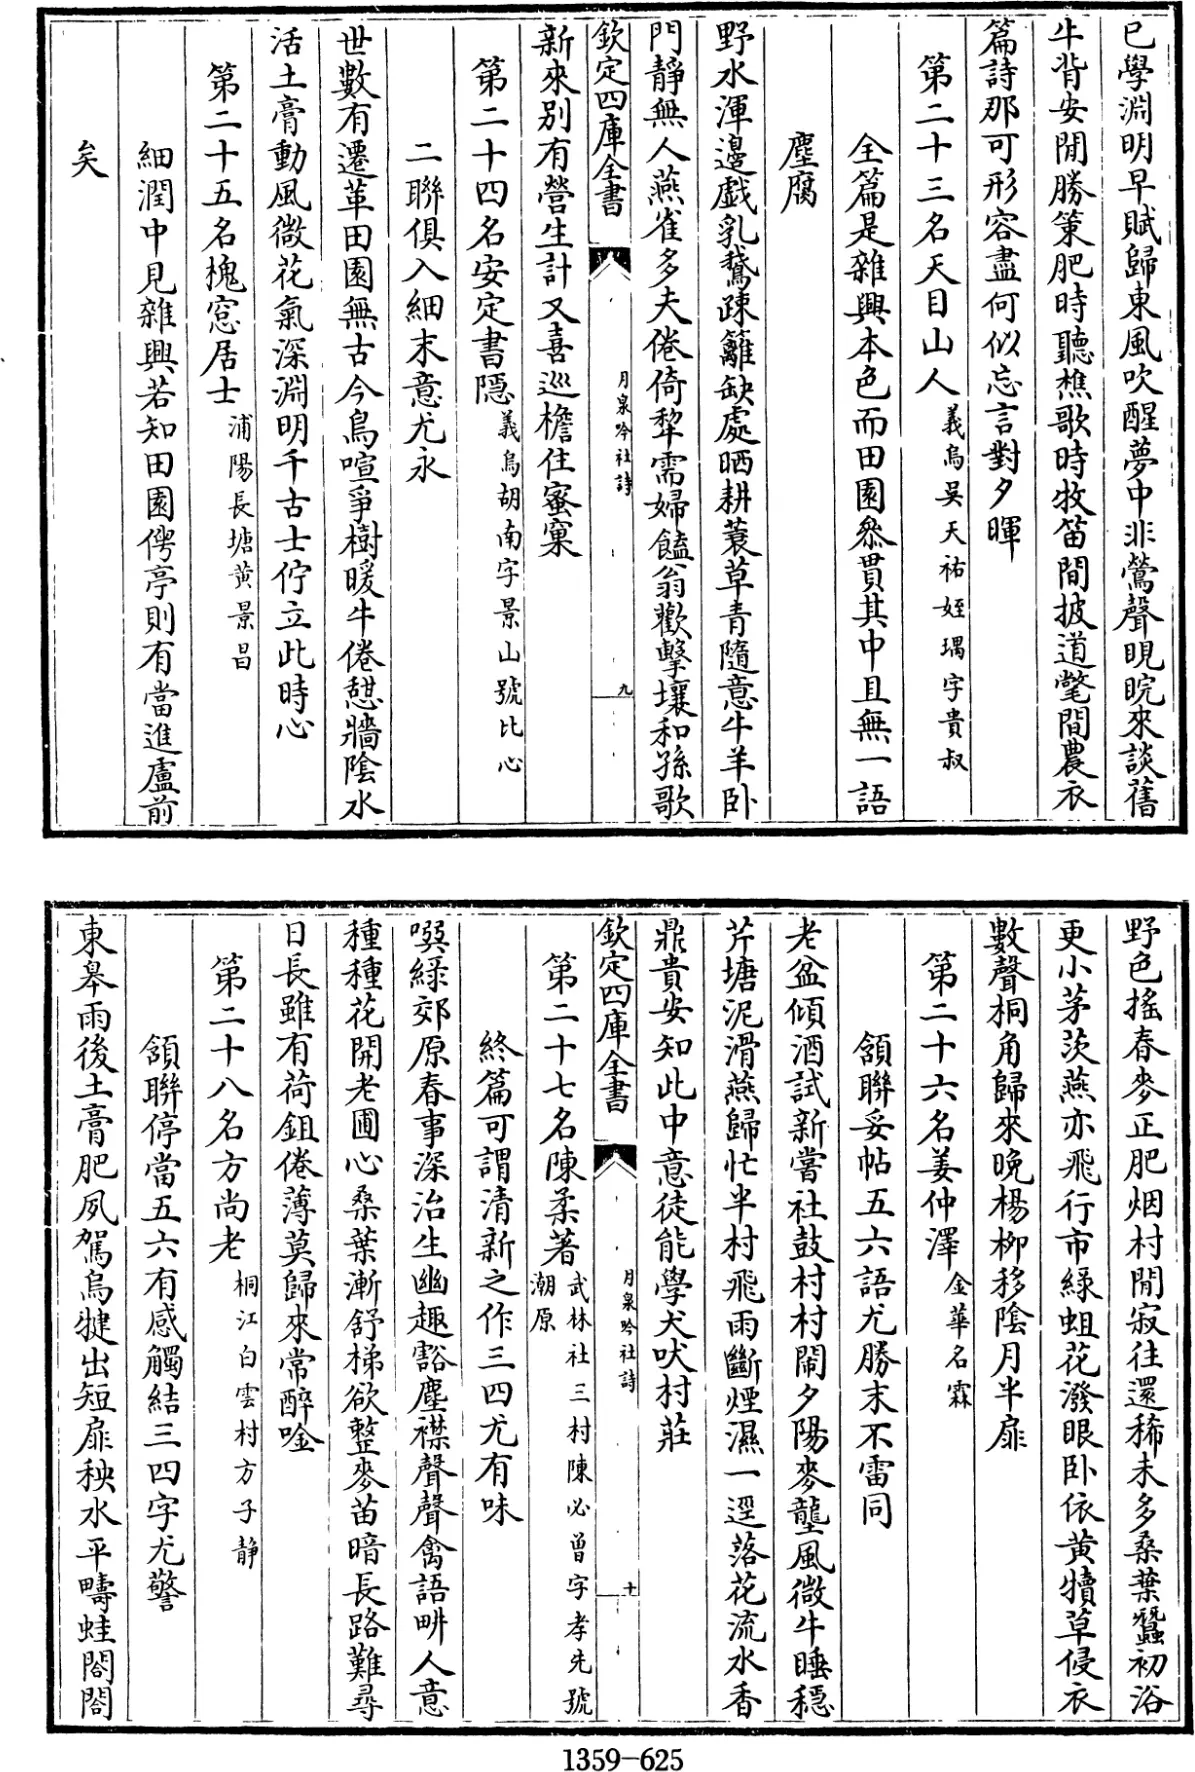 已學淵明早賦歸東風吹醒夢中非鶯聲睍睆來談舊
牛背安閒勝策肥時聽樵歌時牧笛間披道氅間農衣
篇詩那可形容盡何似忘言對夕暉
第二十三名天目山人義烏吳天祐姪瑀字貴叔
全篇是雜興本色而田園叅貫其中且無一語
塵腐
野水渾邊戲乳鵞疎籬缺處晒耕蓑草青隨意牛羊卧
門靜無人燕雀多夫倦倚犂需婦饁翁歡擊壤和孫歌
欽定四庫全書
月泉吟社詩
九
新來別有營生計又喜巡檐住蜜窠
第二十四名安定書隱義烏胡南字景山號比心
二聯俱入細末意尤永
世數有遷革田園無古今鳥喧爭樹暖牛倦憇牆陰水
活土膏動風微花氣深淵明千古士佇立此時心
第二十五名槐窓居士浦陽長塘黄景昌
細潤中見雜興若知田園傳亭則有當進盧前
矣
野色搖春麥正肥烟村閒寂往還稀未多桑葉蠶初浴
更小茅茨燕亦飛行市綠蛆花潑眼卧依黄犢草侵衣
數聲桐角歸來晚楊柳移陰月半扉
第二十六名姜仲澤金華名霖
頷聯妥帖五六語尤勝末不雷同
老盆傾酒試新嘗社鼓村村鬧夕陽麥隴風微牛睡穏
芹塘泥滑燕歸忙半村飛雨斷煙濕一逕落花流水香
鼎貴安知此中意徒能學犬吠村莊
欽定四庫全書
月泉吟社詩
十
第二十七名陳柔著武林社三村陳必曾字孝先號
潮原
終篇可謂清新之作三四尤有味
暝綠郊原春事深治生幽趣豁塵襟聲聲禽語畊人意
種種花開老圃心桑葉漸舒梯欲整麥苗暗長路難尋
日長雖有荷鉏倦薄莫歸來常醉唫
第二十八名方尚老桐江白雲村方子静
頷聯停當五六有感觸結三四字尤警
東皋雨後土膏肥夙駕烏犍出短扉秧水平疇蛙閤閤
1359-625